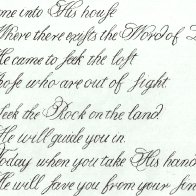 ome into His house
Where there exists the Word of
He came to seek the lost
hose who are out of sight.
Seek the Rock on the land
He will guide you in.
Today when you take His hand
He will save you from your